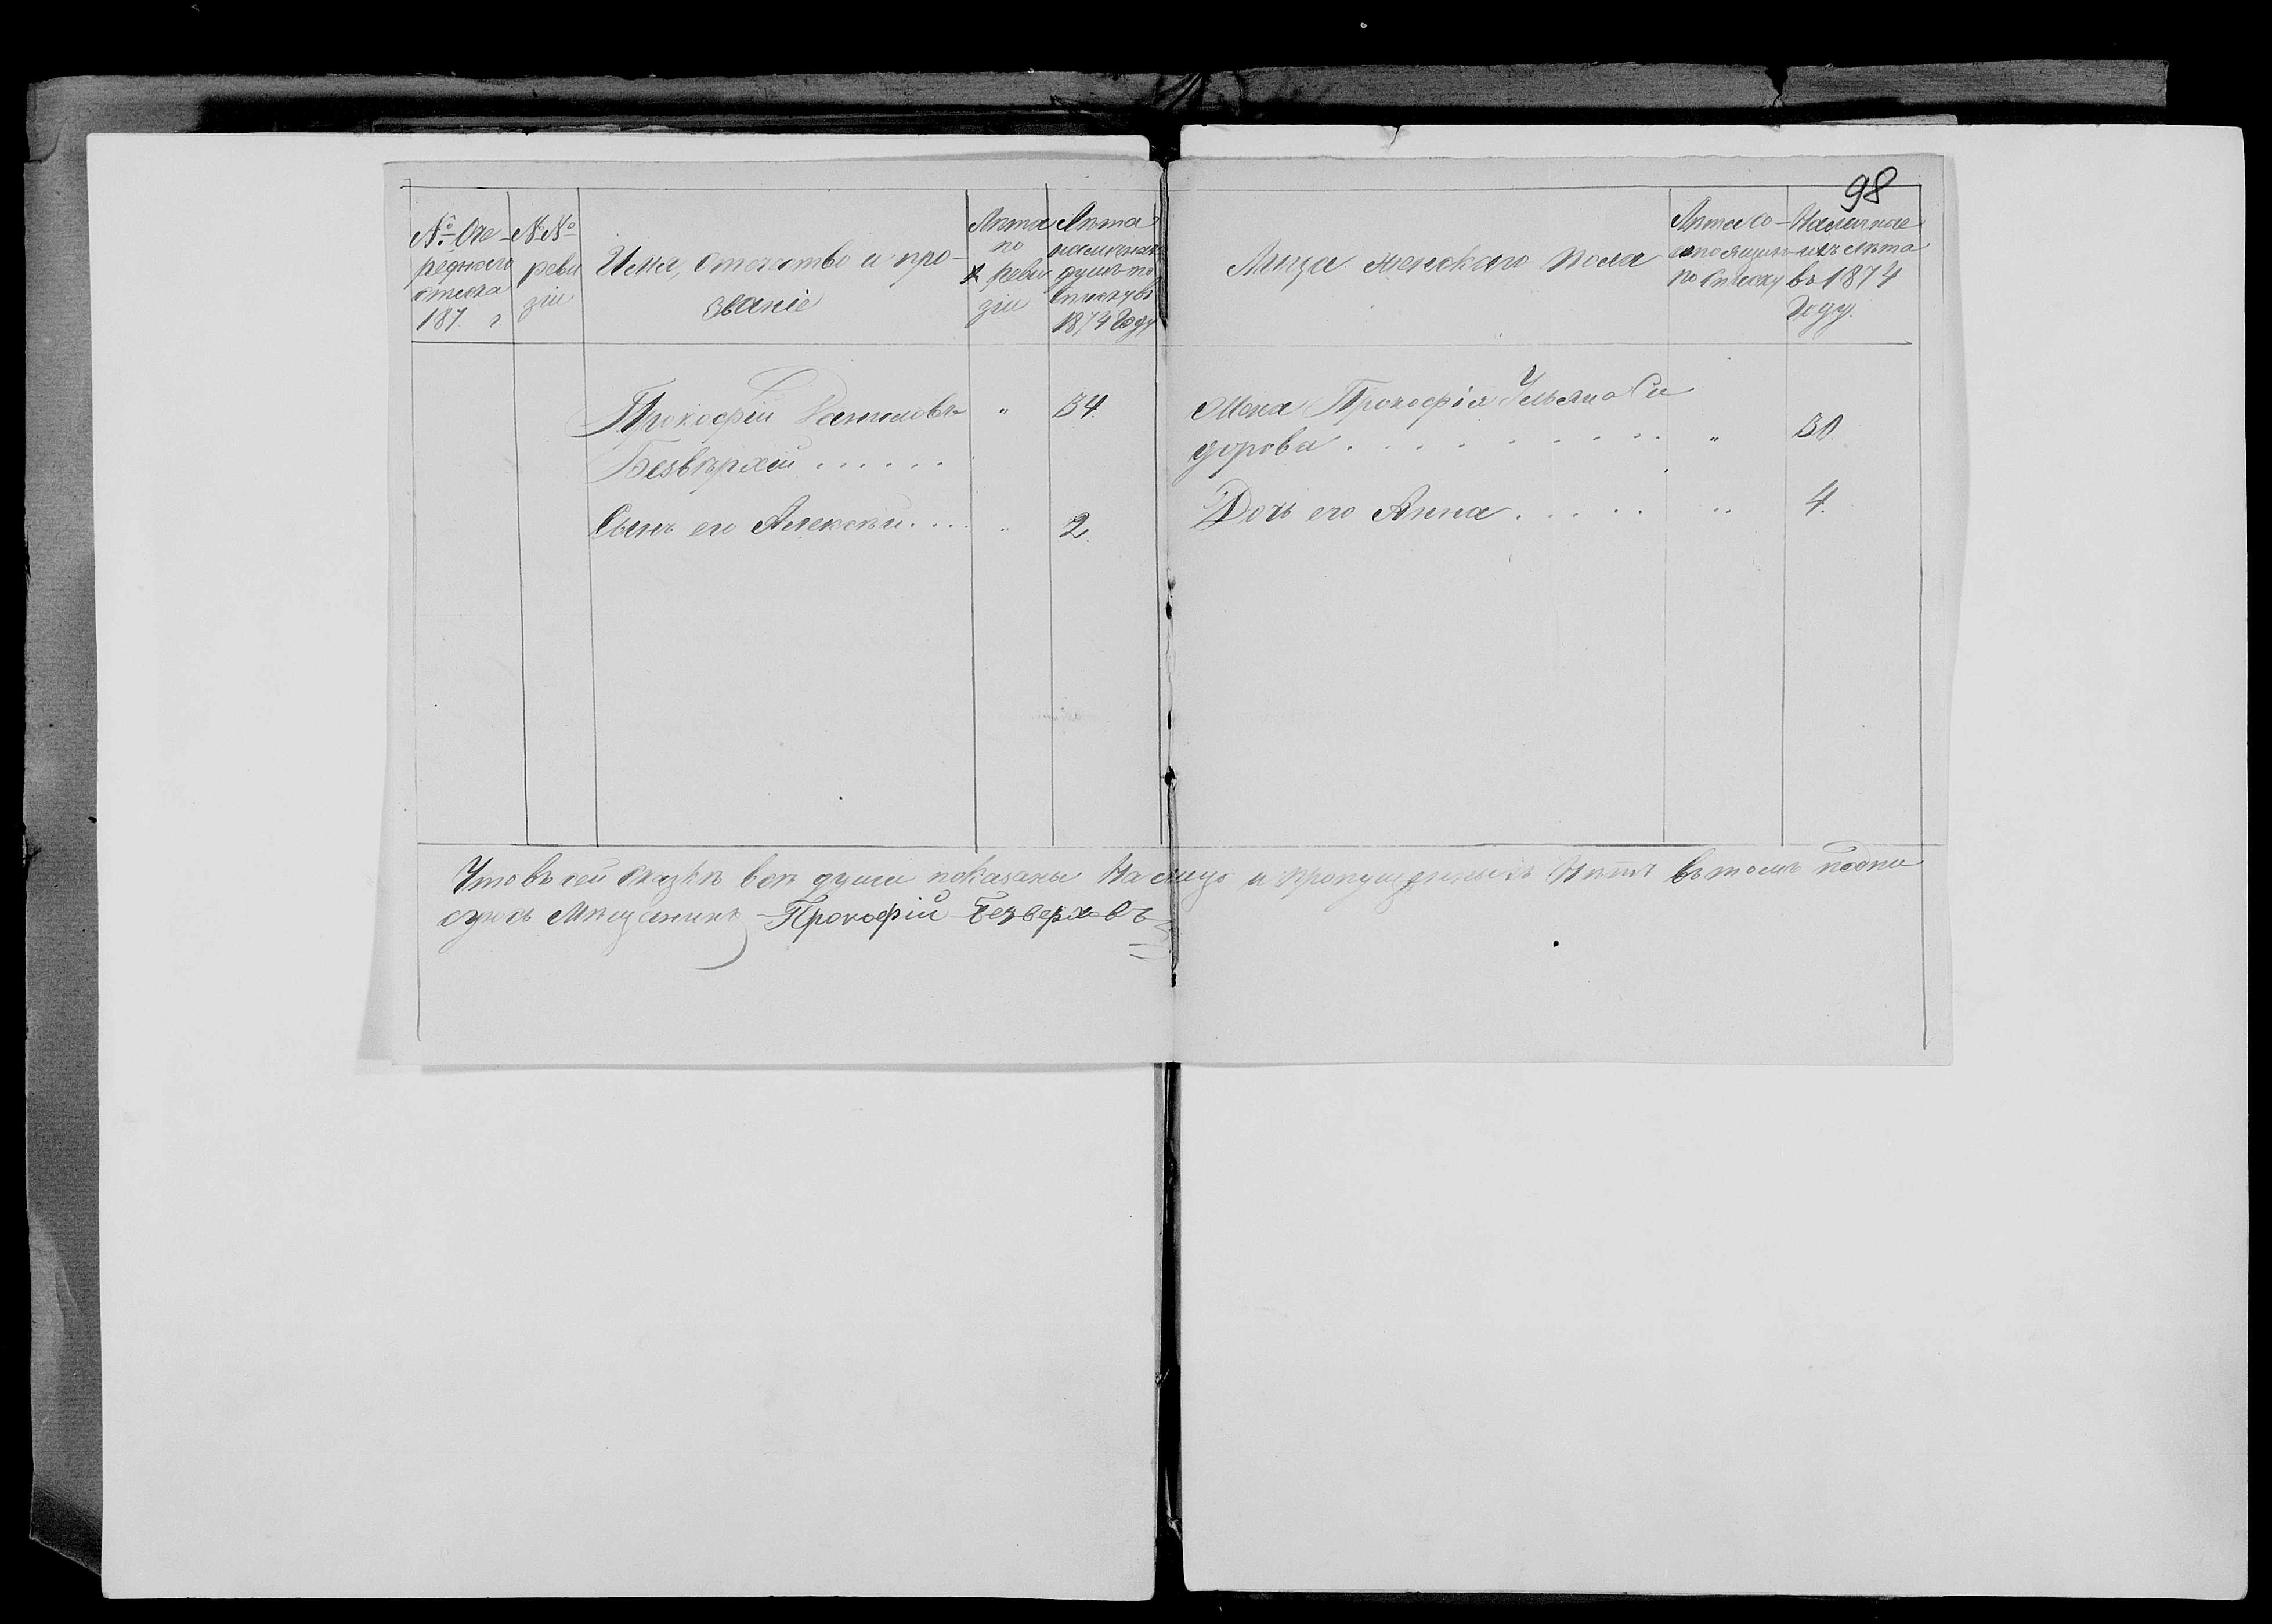 98
№ Оче-
реднаго
списка
187 г
№№
реви
зіи
Имя, Отечество и про-
званіе
Лѣта
по
реви
зіи
Лѣта
наличныхъ
душъ по
списку въ
1874 Году
Лица женскаго пола
Лѣта со-
по Списку
Наличное
ихъ лѣта
въ 1874
Году.
Прокофій " 34.
Безвѣрхій . . . . . .
Сынъ его Алексѣй . . . " 2.
Жена Прокофія Ульяна Си
дорова . . . . . . . . . . " 30.
Дочь его Анна . . . . . " 4.
Что въ сей сказкѣ всѣ души показаны На лицо и пропущенныхъ Нѣтъ въ томъ подпи
суюсь Мѣщанинъ Прокофій Безверховъ